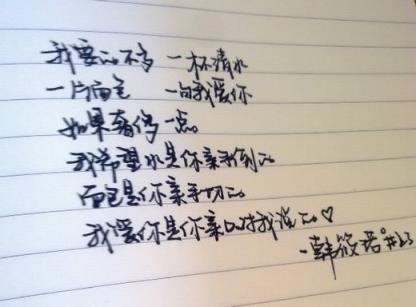 我要的不多 一杯清水
一片面包 一句我爱你
如果奢侈一点
我希望水是你亲手倒的
面包是你亲手切的
我爱你是你亲口对我说的♡
-韩筱珺 #23